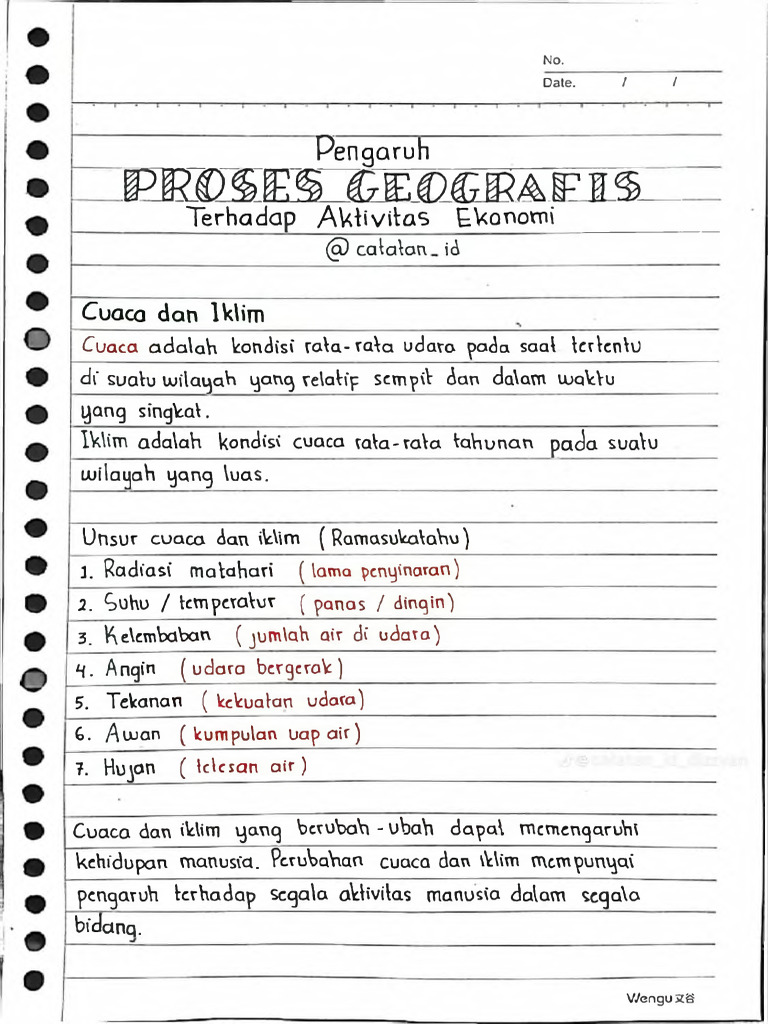 No.
Date. / /
Pengaruh
PROSES GEOGRAFIS
Terhadap Aktivitas Ekonomi
@ catatan_id
Cuaca dan Iklim
Cuaca adalah kondisi rata-rata udara pada saat tertentu
di suatu wilayah yang relatif sempit dan dalam waktu
yang singkat.
Iklim adalah kondisi cuaca rata-rata tahunan pada suatu
wilayah yang luas.
Unsur cuaca dan iklim (Ramasukatahu)
1. Radiasi matahari (lama penyinaran)
2. Suhu / temperatur (panas / dingin)
3. Kelembaban (jumlah air di udara)
4. Angin (udara bergerak)
5. Tekanan (kekuatan udara)
6. Awan (kumpulan uap air)
7. Hujan (tetesan air)
Cuaca dan iklim yang berubah-ubah dapat memengaruhi
kehidupan manusia. Perubahan cuaca dan iklim mempunyai
pengaruh terhadap segala aktivitas manusia dalam segala
bidang.
Wengu文谷